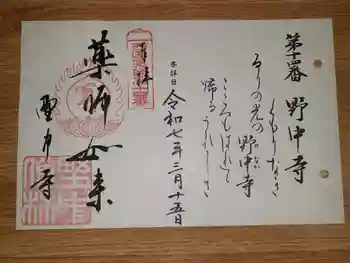 第十四番 野中寺
くもりなき
るりの光の野中寺
こころもはれて
帰るうれしさ
参拝日
令和七年三月十五日
奉拝
薬師如来
野中寺